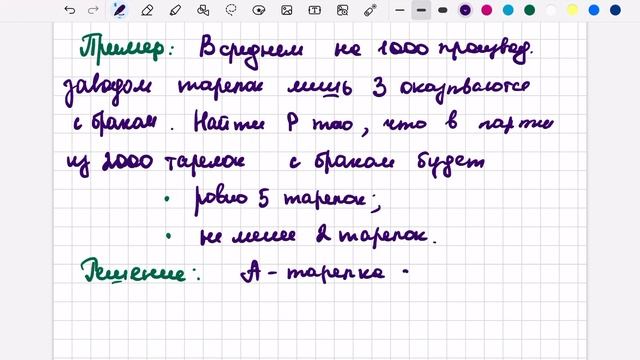 Пример: В среднем на 1000 производ.
заводом тарелок лишь 3 оказываются
с браком. Найти P того, что в партии
из 2000 тарелок с браком будет
• ровно 5 тарелок;
• не менее 2 тарелок.
Решение: A - тарелка -